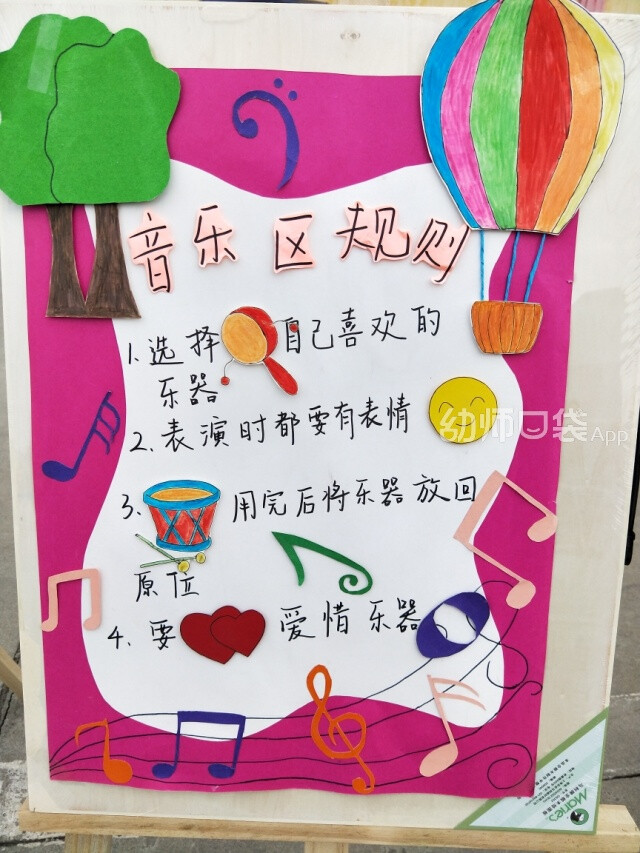 音乐区规则
1.选择自己喜欢的
乐器
2.表演时都要有表情
幼师口袋App
3.用完后将乐器放回
原位
4.要爱惜乐器
Maries